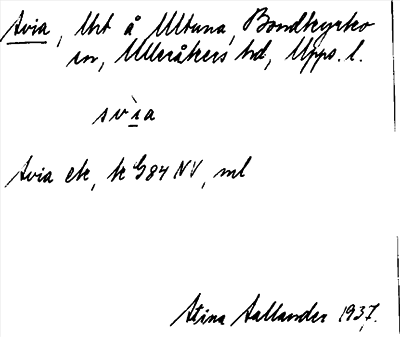 Svia, Urt å Ultuna, Bondkyrko
sn, Ulleråkers hd, Upps. l.
svìa
Svia ek, k G84 NV, ml
Stina Sallander 1937.